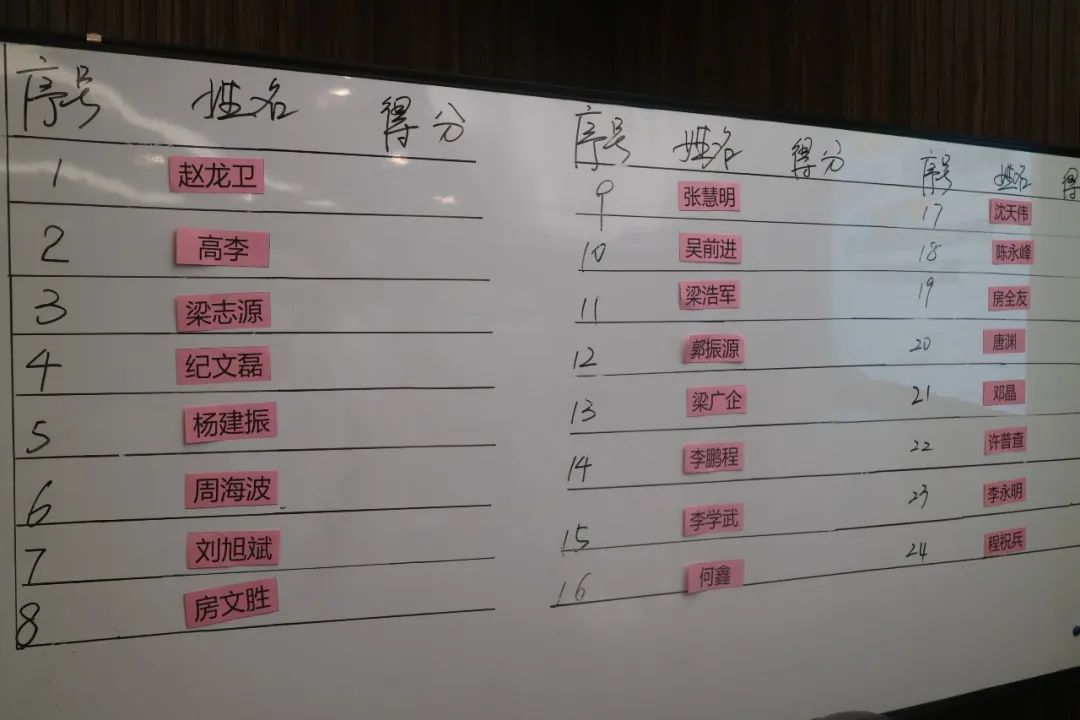 序号 姓名 得分
1 赵龙卫
2 高李
3 梁志源
4 纪文磊
5 杨建振
6 周海波
7 刘旭斌
8 房文胜
序号 姓名 得分
9 张慧明
10 吴前进
11 梁浩军
12 郭振源
13 梁广企
14 李鹏程
15 李学武
16 何鑫
序号 姓名 得
17 沈天伟
18 陈永峰
19 房全友
20 唐渊
21 邓晶
22 许普查
23 李永明
24 程祝兵